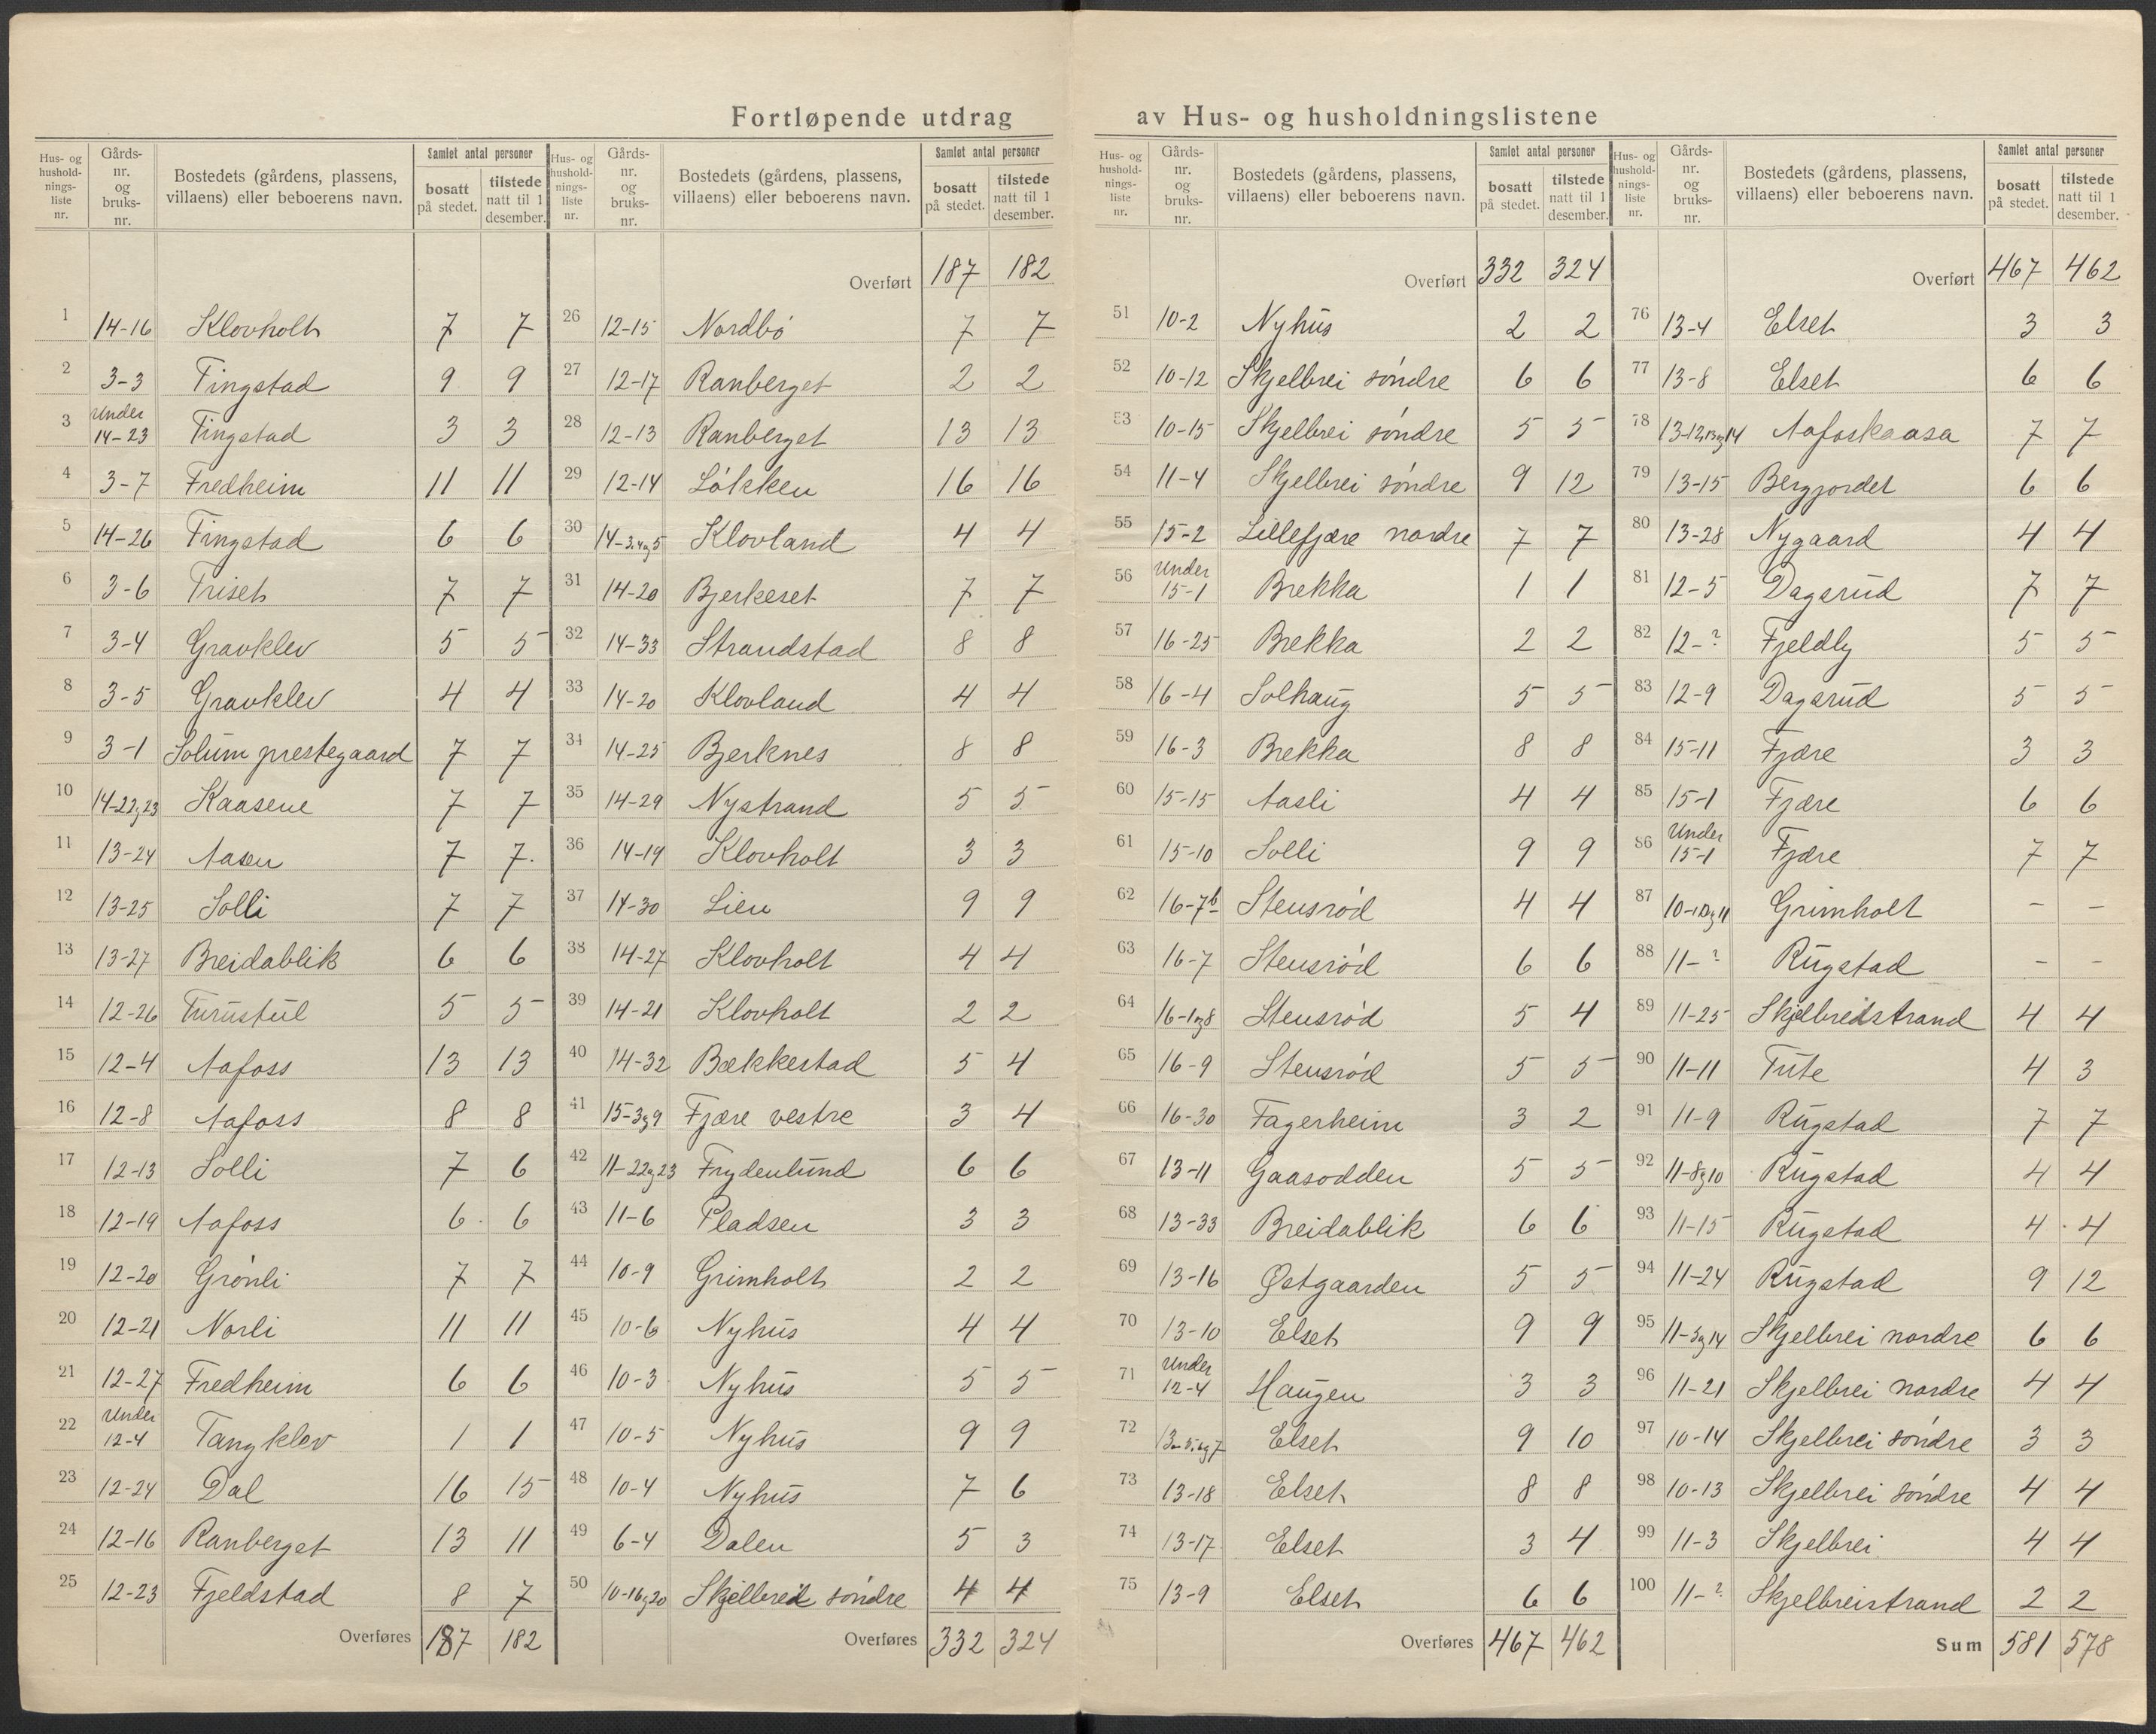 Fortløpende utdrag av Hus- og husholdningslistene
Hus- og husholdnings-liste nr. Gårds-nr. og bruks-nr. Bostedets (gårdens, plassens, villaens) eller beboerens navn. Samlet antal personer bosatt på stedet. tilstede natt til 1 desember.
1 14-16 Klovholt 7 7
2 3-3 Tingstad 9 9
3 Under 14-23 Tingstad 3 3
4 3-7 Fredheim 11 11
5 14-26 Tingstad 6 6
6 3-6 Triset 7 7
7 3-4 Gravklev 5 5
8 3-5 Gravklev 4 4
9 3-1 Solum prestegaard 7 7
10 14-22og23 Kaasene 7 7
11 13-24 Aasen 7 7.
12 13-25 Solli 7 7
13 13-27 Breidablik 6 6
14 12-26 Turustul 5 5
15 12-4 Aafoss 13 13
16 12-8 Aafoss 8 8
17 12-13 Solli 7 6
18 12-19 Aafoss 6 6
19 12-20 Grønli 7 7
20 12-21 Norli 11 11
21 12-27 Fredheim 6 6
22 Under 12-4 Tangklev 1 1
23 12-24 Dal 16 15
24 12-16 Ranberget 13 11
25 12-23 Fjeldstad 8 7
Overføres 187 182
Hus- og husholdnings-liste nr. Gårds-nr. og bruks-nr. Bostedets (gårdens, plassens, villaens) eller beboerens navn. Samlet antal personer bosatt på stedet. tilstede natt til 1 desember.
Overført 187 182
26 12-15 Nordbö 7 7
27 12-17 Ranberget 2 2
28 12-13 Ranberget 13 13
29 12-14 Løkken 16 16
30 14-3.4og5 Klovland 4 4
31 14-20 Bjerkeset 7 7
32 14-33 Strandstad 8 8
33 14-20 Klovland 4 4
34 14-25 Bjerknes 8 8
35 14-29 Nystrand 5 5
36 14-19 Klovholt 3 3
37 14-30 Lien 9 9
38 14-27 Klovholt 4 4
39 14-21 Klovholt 2 2
40 14-32 Bækkestad 5 4
41 15-3og9 Fjære vestre 3 4
42 11-22og23 Frydenlund 6 6
43 11-6 Pladsen 3 3
44 10-9 Grimholt 2 2
45 10-6 Nyhus 4 4
46 10-3 Nyhus 5 5
47 10-5 Nyhus 9 9
48 10-4 Nyhus 7 6
49 6-4 Dalen 5 3
50 10-16og20 Skjelbreid søndre 4 4
Overføres 332 324
Hus- og husholdnings-liste nr. Gårds-nr. og bruks-nr. Bostedets (gårdens, plassens, villaens) eller beboerens navn. Samlet antal personer bosatt på stedet. tilstede natt til 1 desember.
Overført 332 324
51 10-2 Nyhus 2 2
52 10-12 Skjelbrei søndre 6 6
53 10-15 Skjelbrei søndre 5 5
54 11-4 Skjelbrei søndre 9 12
55 15-2 Lillefjære nordre 7 7
56 Under 15-1 Brekka 1 1
57 16-25 Brekka 2 2
58 16-4 Solhaug 5 5
59 16-3 Brekka 8 8
60 15-15 Aasli 4 4
61 15-10 Solli 9 9
62 16-7b Stensrød 4 4
63 16-7 Stensrød 6 6
64 16-1og8 Stensrød 5 4
65 16-9 Stensrød 5 5
66 16-30 Fagerheim 3 2
67 13-11 Gaasodden 5 5
68 13-33 Breidablik 6 6
69 13-16 Østgaarden 5 5
70 13-10 Elset 9 9
71 Under 12-4 Haugen 3 3
72 13-5.og7 Elset 9 10
73 13-18 Elset 8 8
74 13-17 Elset 3 4
75 13-9 Elset 6 6
Overføres 467 462
Hus- og husholdnings-liste nr. Gårds-nr. og bruks-nr. Bostedets (gårdens, plassens, villaens) eller beboerens navn. Samlet antal personer bosatt på stedet. tilstede natt til 1 desember.
Overført 467 462
76 13-4 Elset 3 3
77 13-8 Elset 6 6
78 13-12,13og14 Aafoskaasa 7 7
79 13-15 Bergjordet 6 6
80 13-28 Nygaard 4 4
81 12-5 Dagsrud 7 7
82 12-? Fjeldly 5 5
83 12-9 Dagsrud 5 5
84 15-11 Fjære 3 3
85 15-1 Fjære 6 6
86 Under 15-1 Fjære 7 7
87 10-10og11 Grimholt - -
88 11-? Rugstad - -
89 11-25 Skjelbreidstrand 4 4
90 11-11 Tute 4 3
91 11-9 Rugstad 7 7
92 11-8og10 Rugstad 4 4
93 11-15 Rugstad 4 4
94 11-24 Rugstad 9 12
95 11-3og14 Skjelbrei nordre 6 6
96 11-21 Skjelbrei nordre 4 4
97 10-14 Skjelbrei søndre 3 3
98 10-13 Skjelbrei søndre 4 4
99 11-3 Skjelbrei 4 4
100 11-? Skjelbreistrand 2 2
Sum 581 578